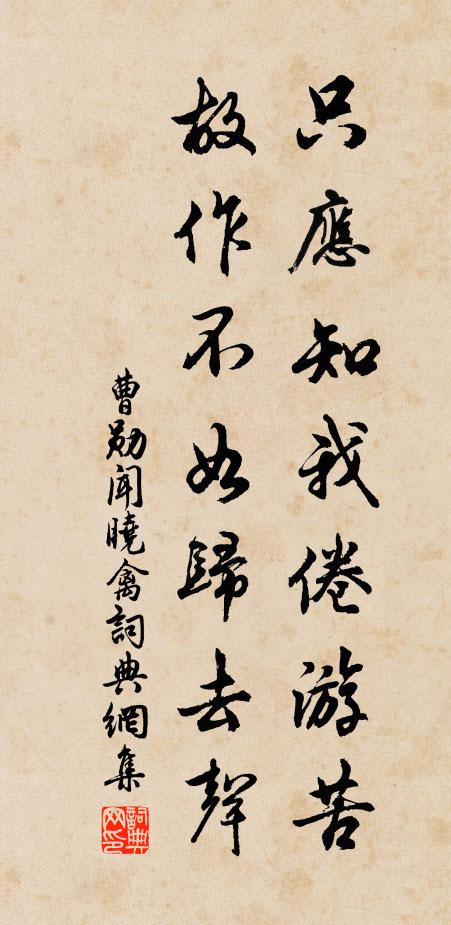 只應知我倦游苦
故作不如歸去聲
曹勛聞曉禽詞典網集
詞典网印